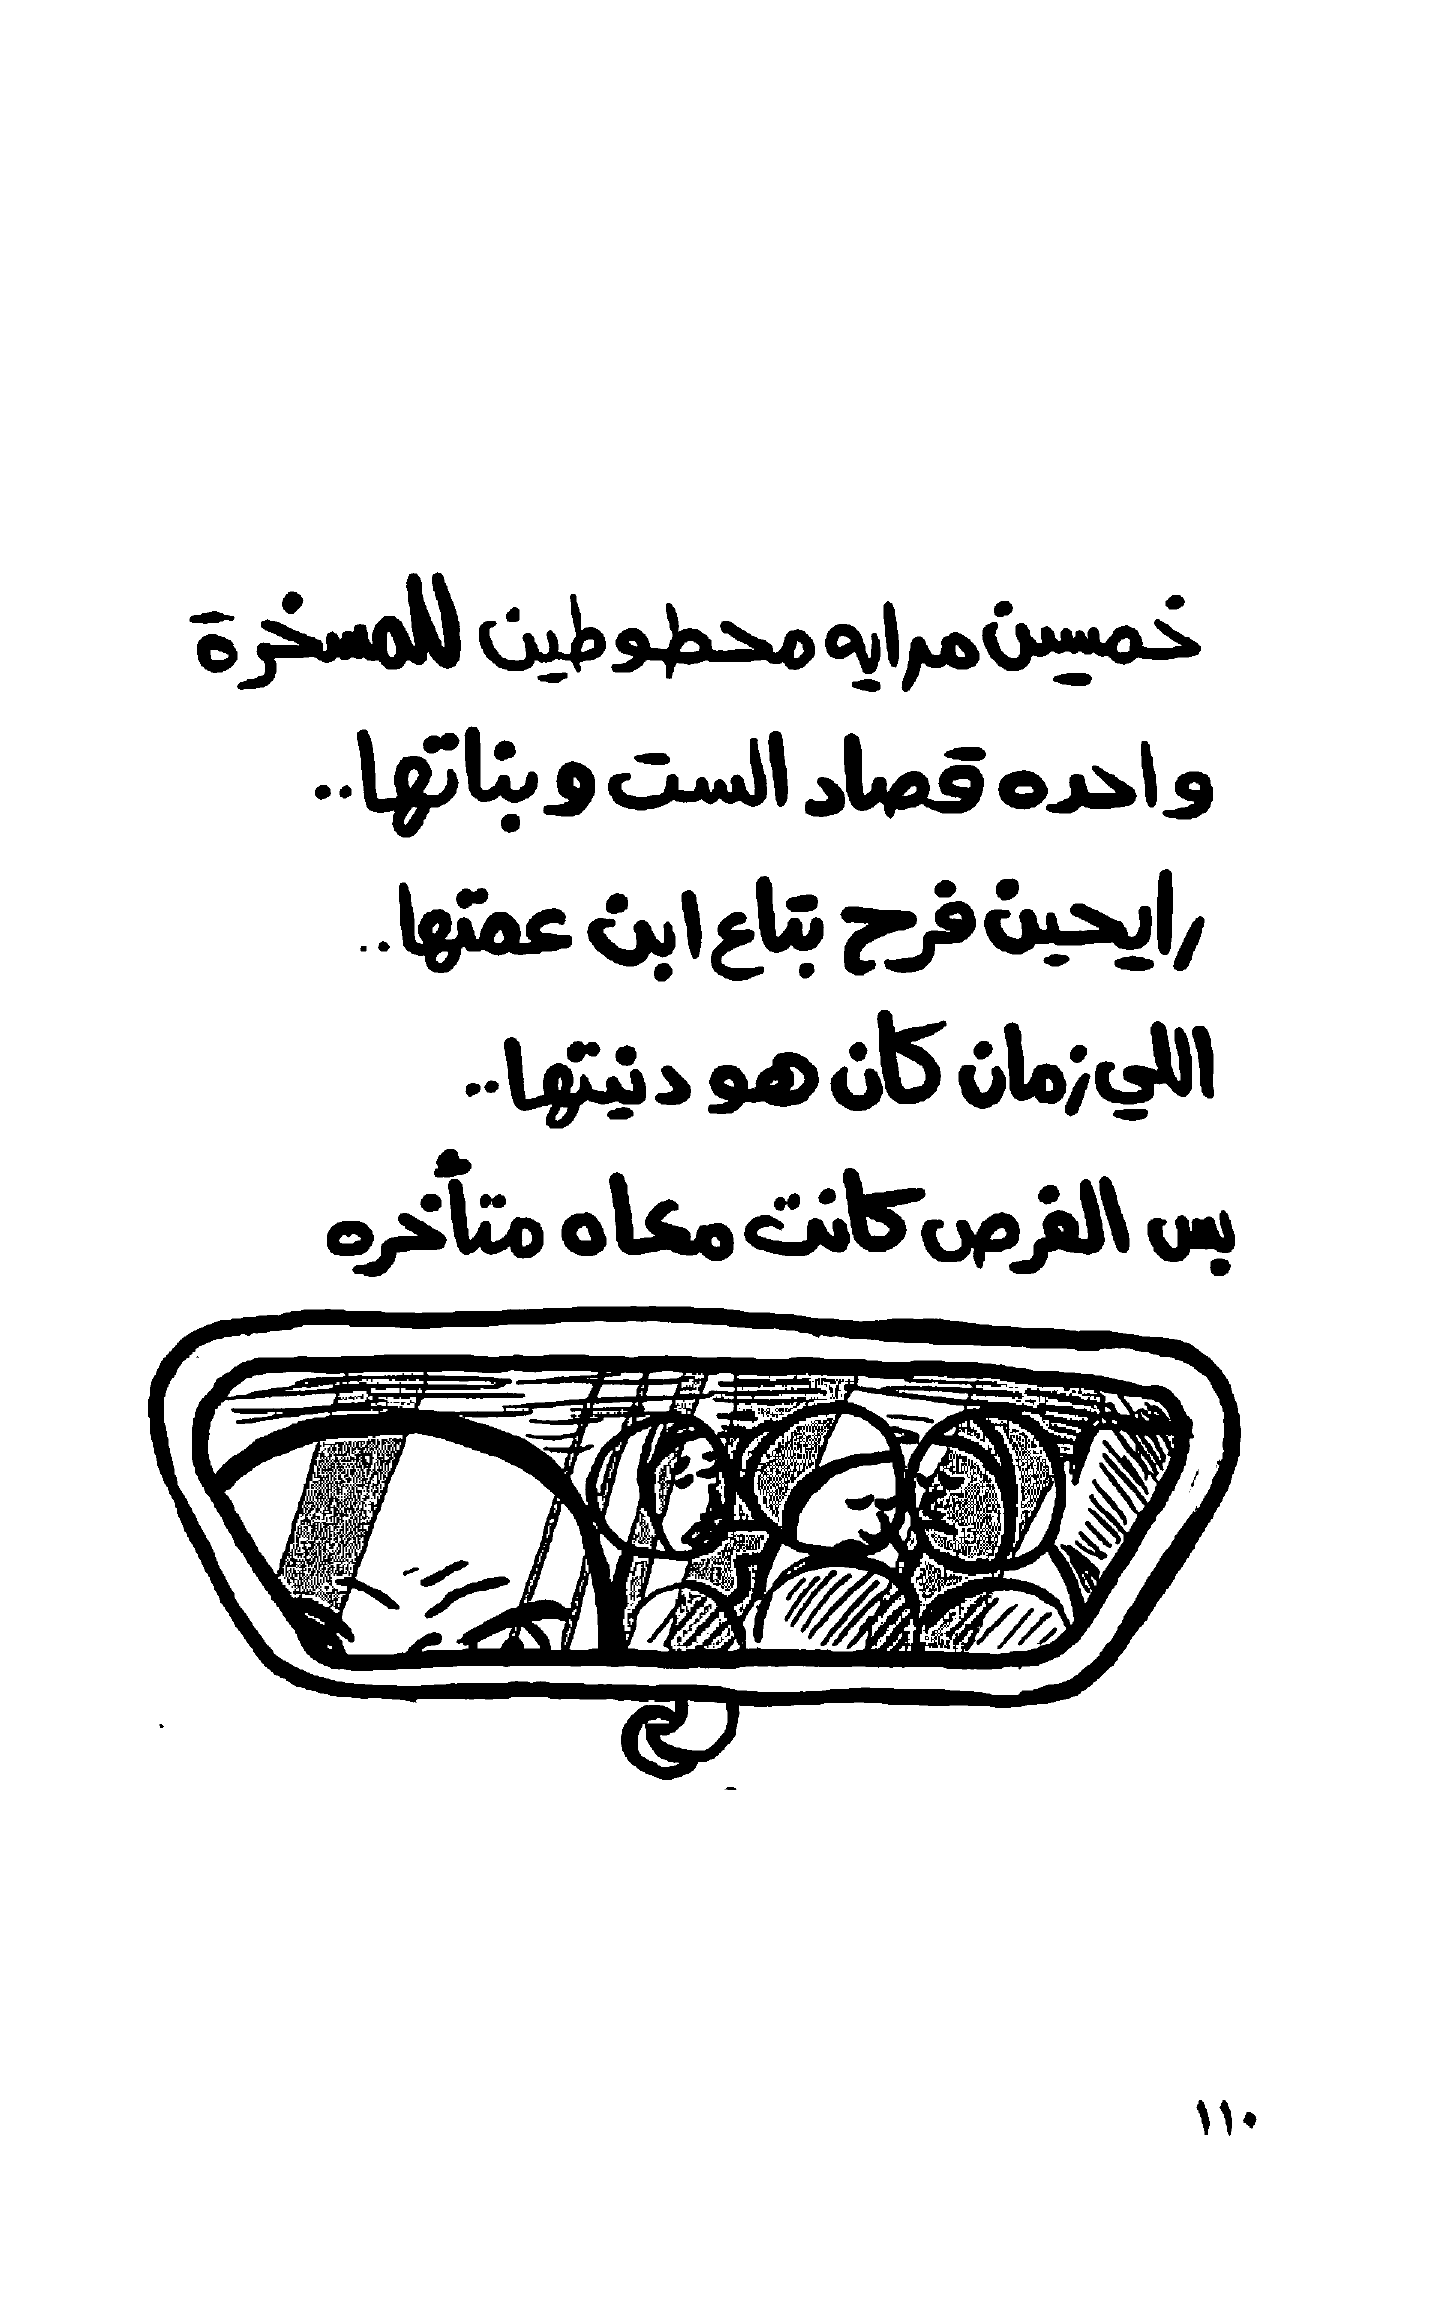 خمسين مرايه محطوطين للمسخرة
واحده قصاد الست وبناتها..
رايحين فرح بتاع ابن عمتها..
اللي زمان كان هو دنيتها..
بس الفرص كانت معاه متأخره
١١٠